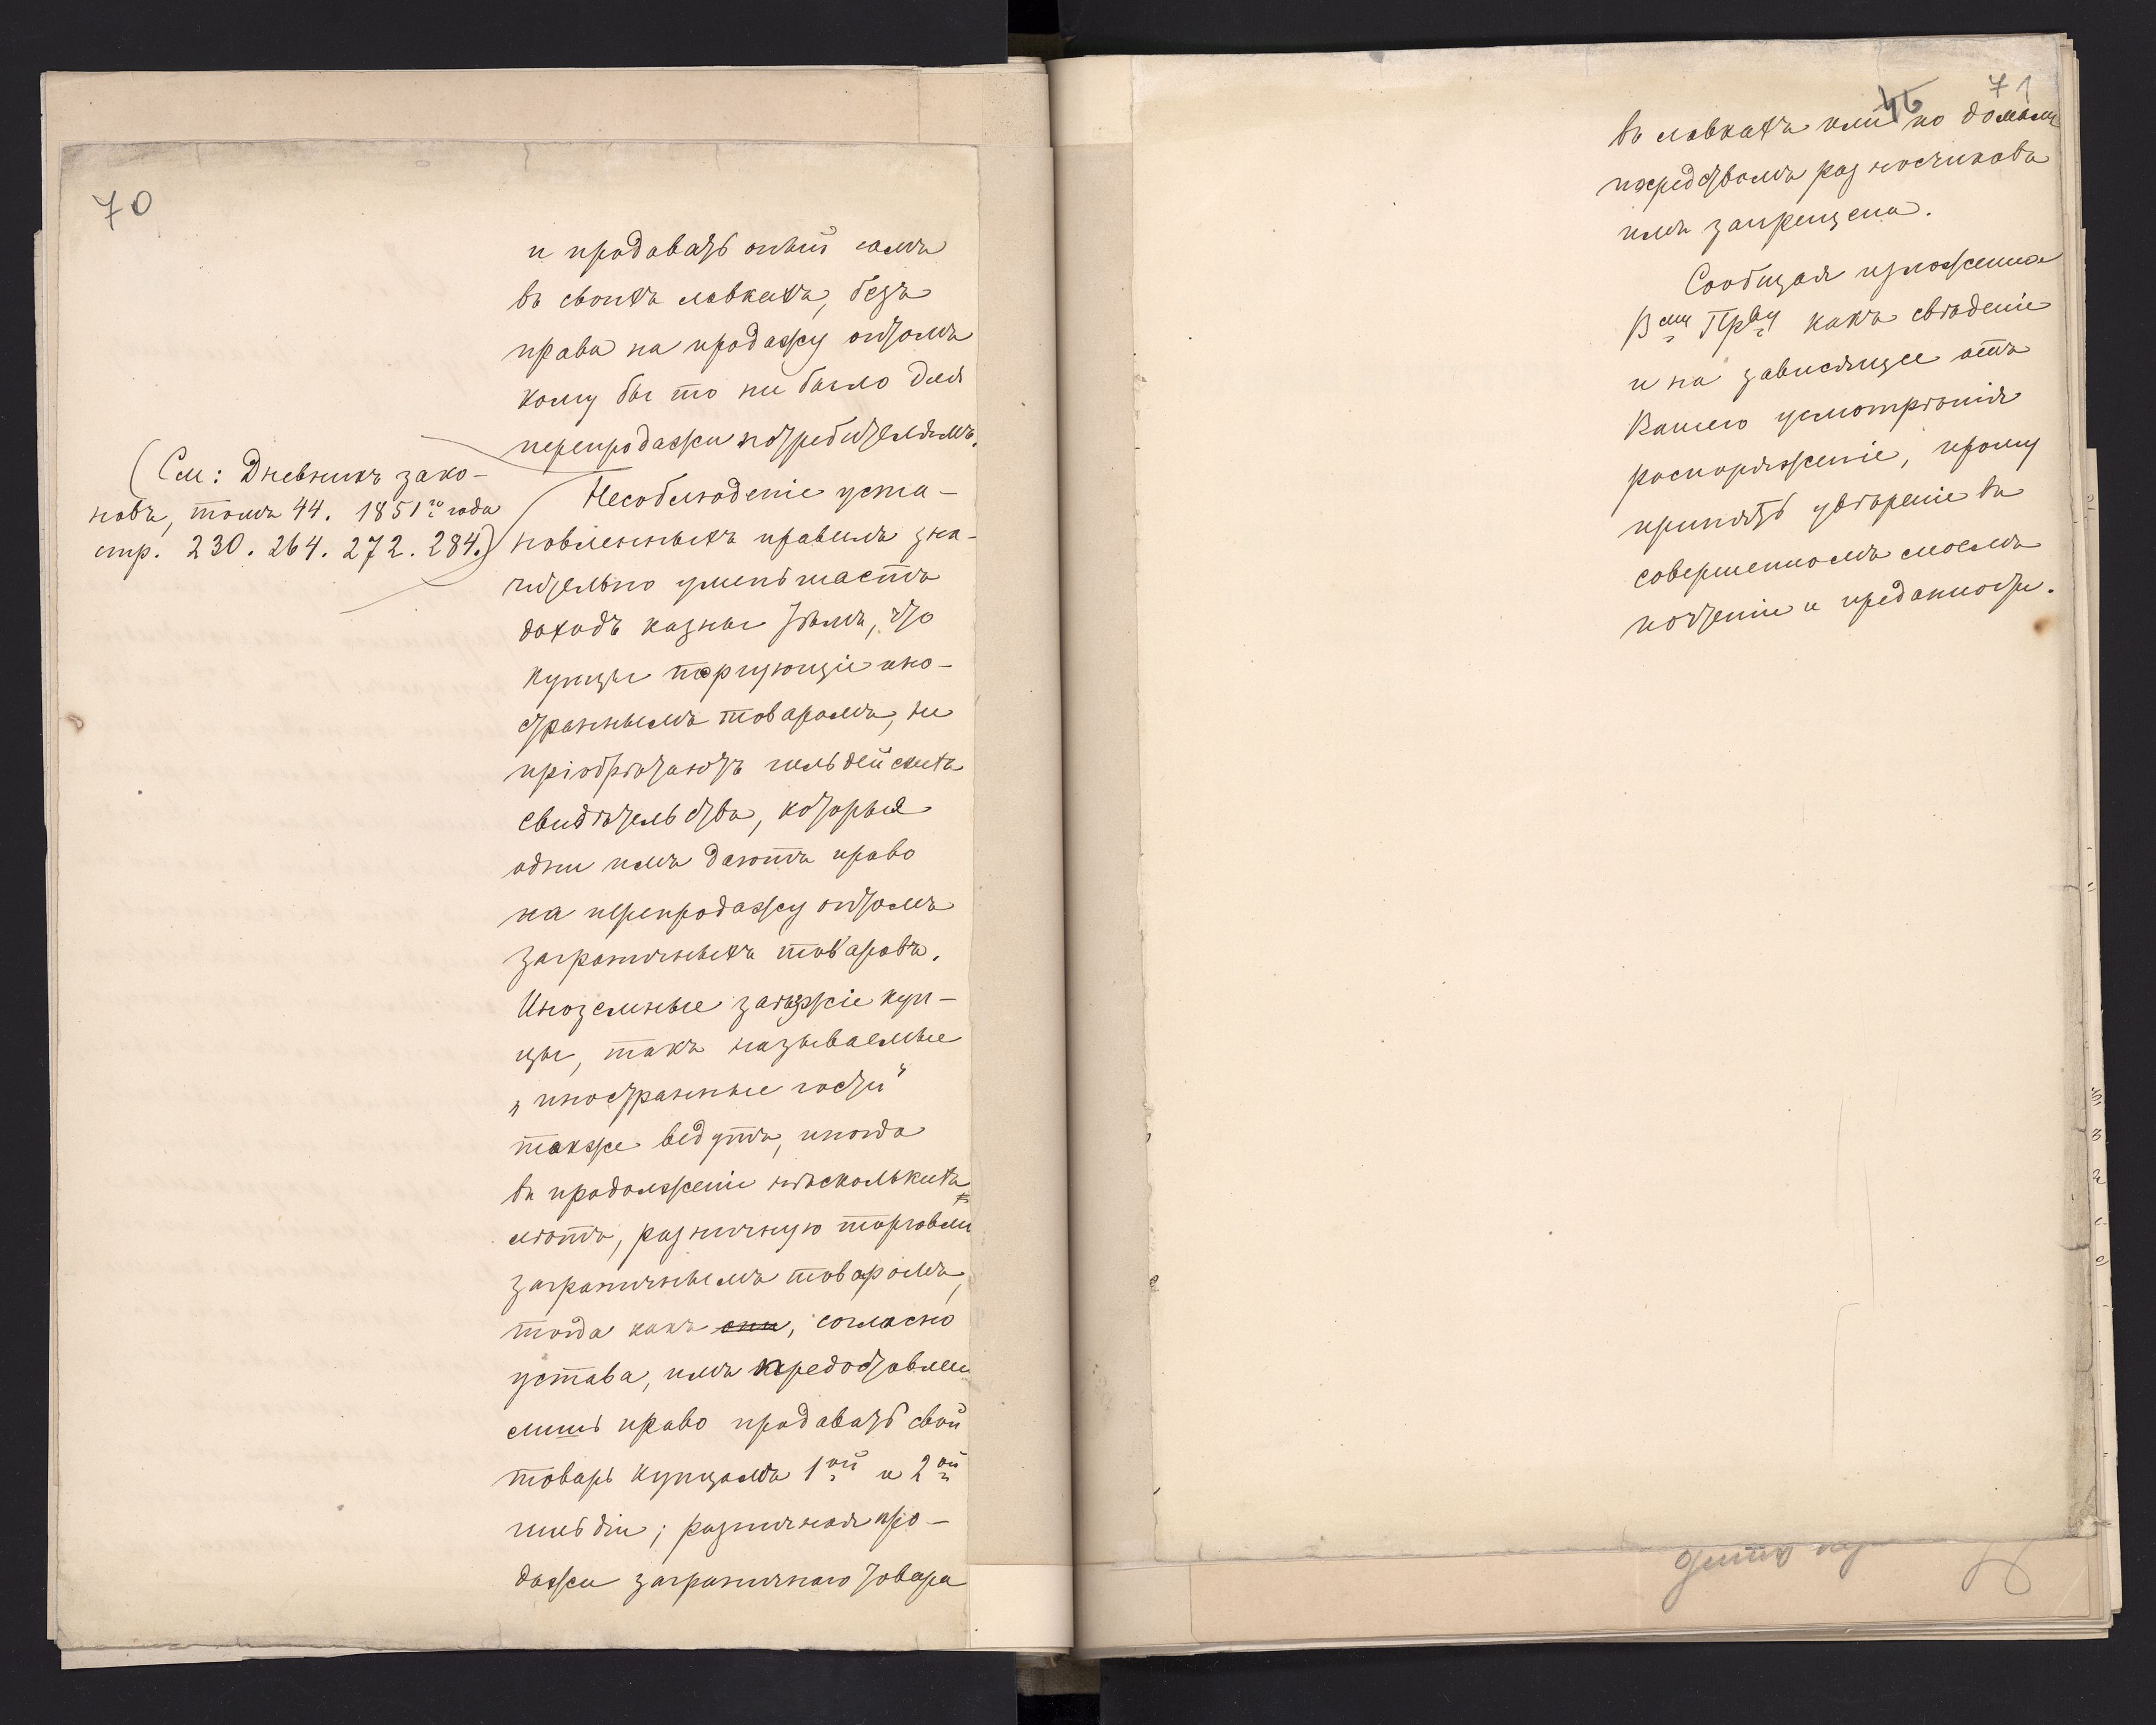 70
и продавать оный самъ
въ своихъ лавкахъ, безъ
права на продажу оптомъ
кому бы то ни было для
перепродажи потребителямъ.
(См: Дневникъ зако-
новъ, томъ 44. 1851го года
стр. 230. 264. 272. 284.)
Несоблюденіе уста-
новленныхъ правилъ зна-
чительно уменьшаетъ
доходъ казны тѣмъ, что
купцы торгующіе ино-
страннымъ товаромъ, не
пріобрѣтаютъ гильдейскихъ
свидѣтельствъ, которыя
одни имъ даютъ право
на перепродажу оптомъ
заграничныхъ товаровъ.
Иноземные заѣзжіе куп-
цы, такъ называемые
„иностранные гости"
также ведутъ, иногда
въ продолженіи нѣсколькихъ
лѣтъ, розничную торговлю
заграничнымъ товаромъ,
тогда какъ они, согласно
устава, имъ предоставлено
лишь право продавать свой
товаръ купцамъ 1ой и 2ой
гильдіи; розничная про-
дажа заграничнаго товара
71
46
въ лавкахъ или по домамъ
посредствомъ разносчиковъ
имъ запрещена.
Сообщая изложенное
Вему Прву какъ свѣденіе
и на зависящее отъ
Вашего усмотрѣнія
распоряженіе, прошу
принять увѣреніе въ
совершенномъ моемъ
почтеніи и преданности.